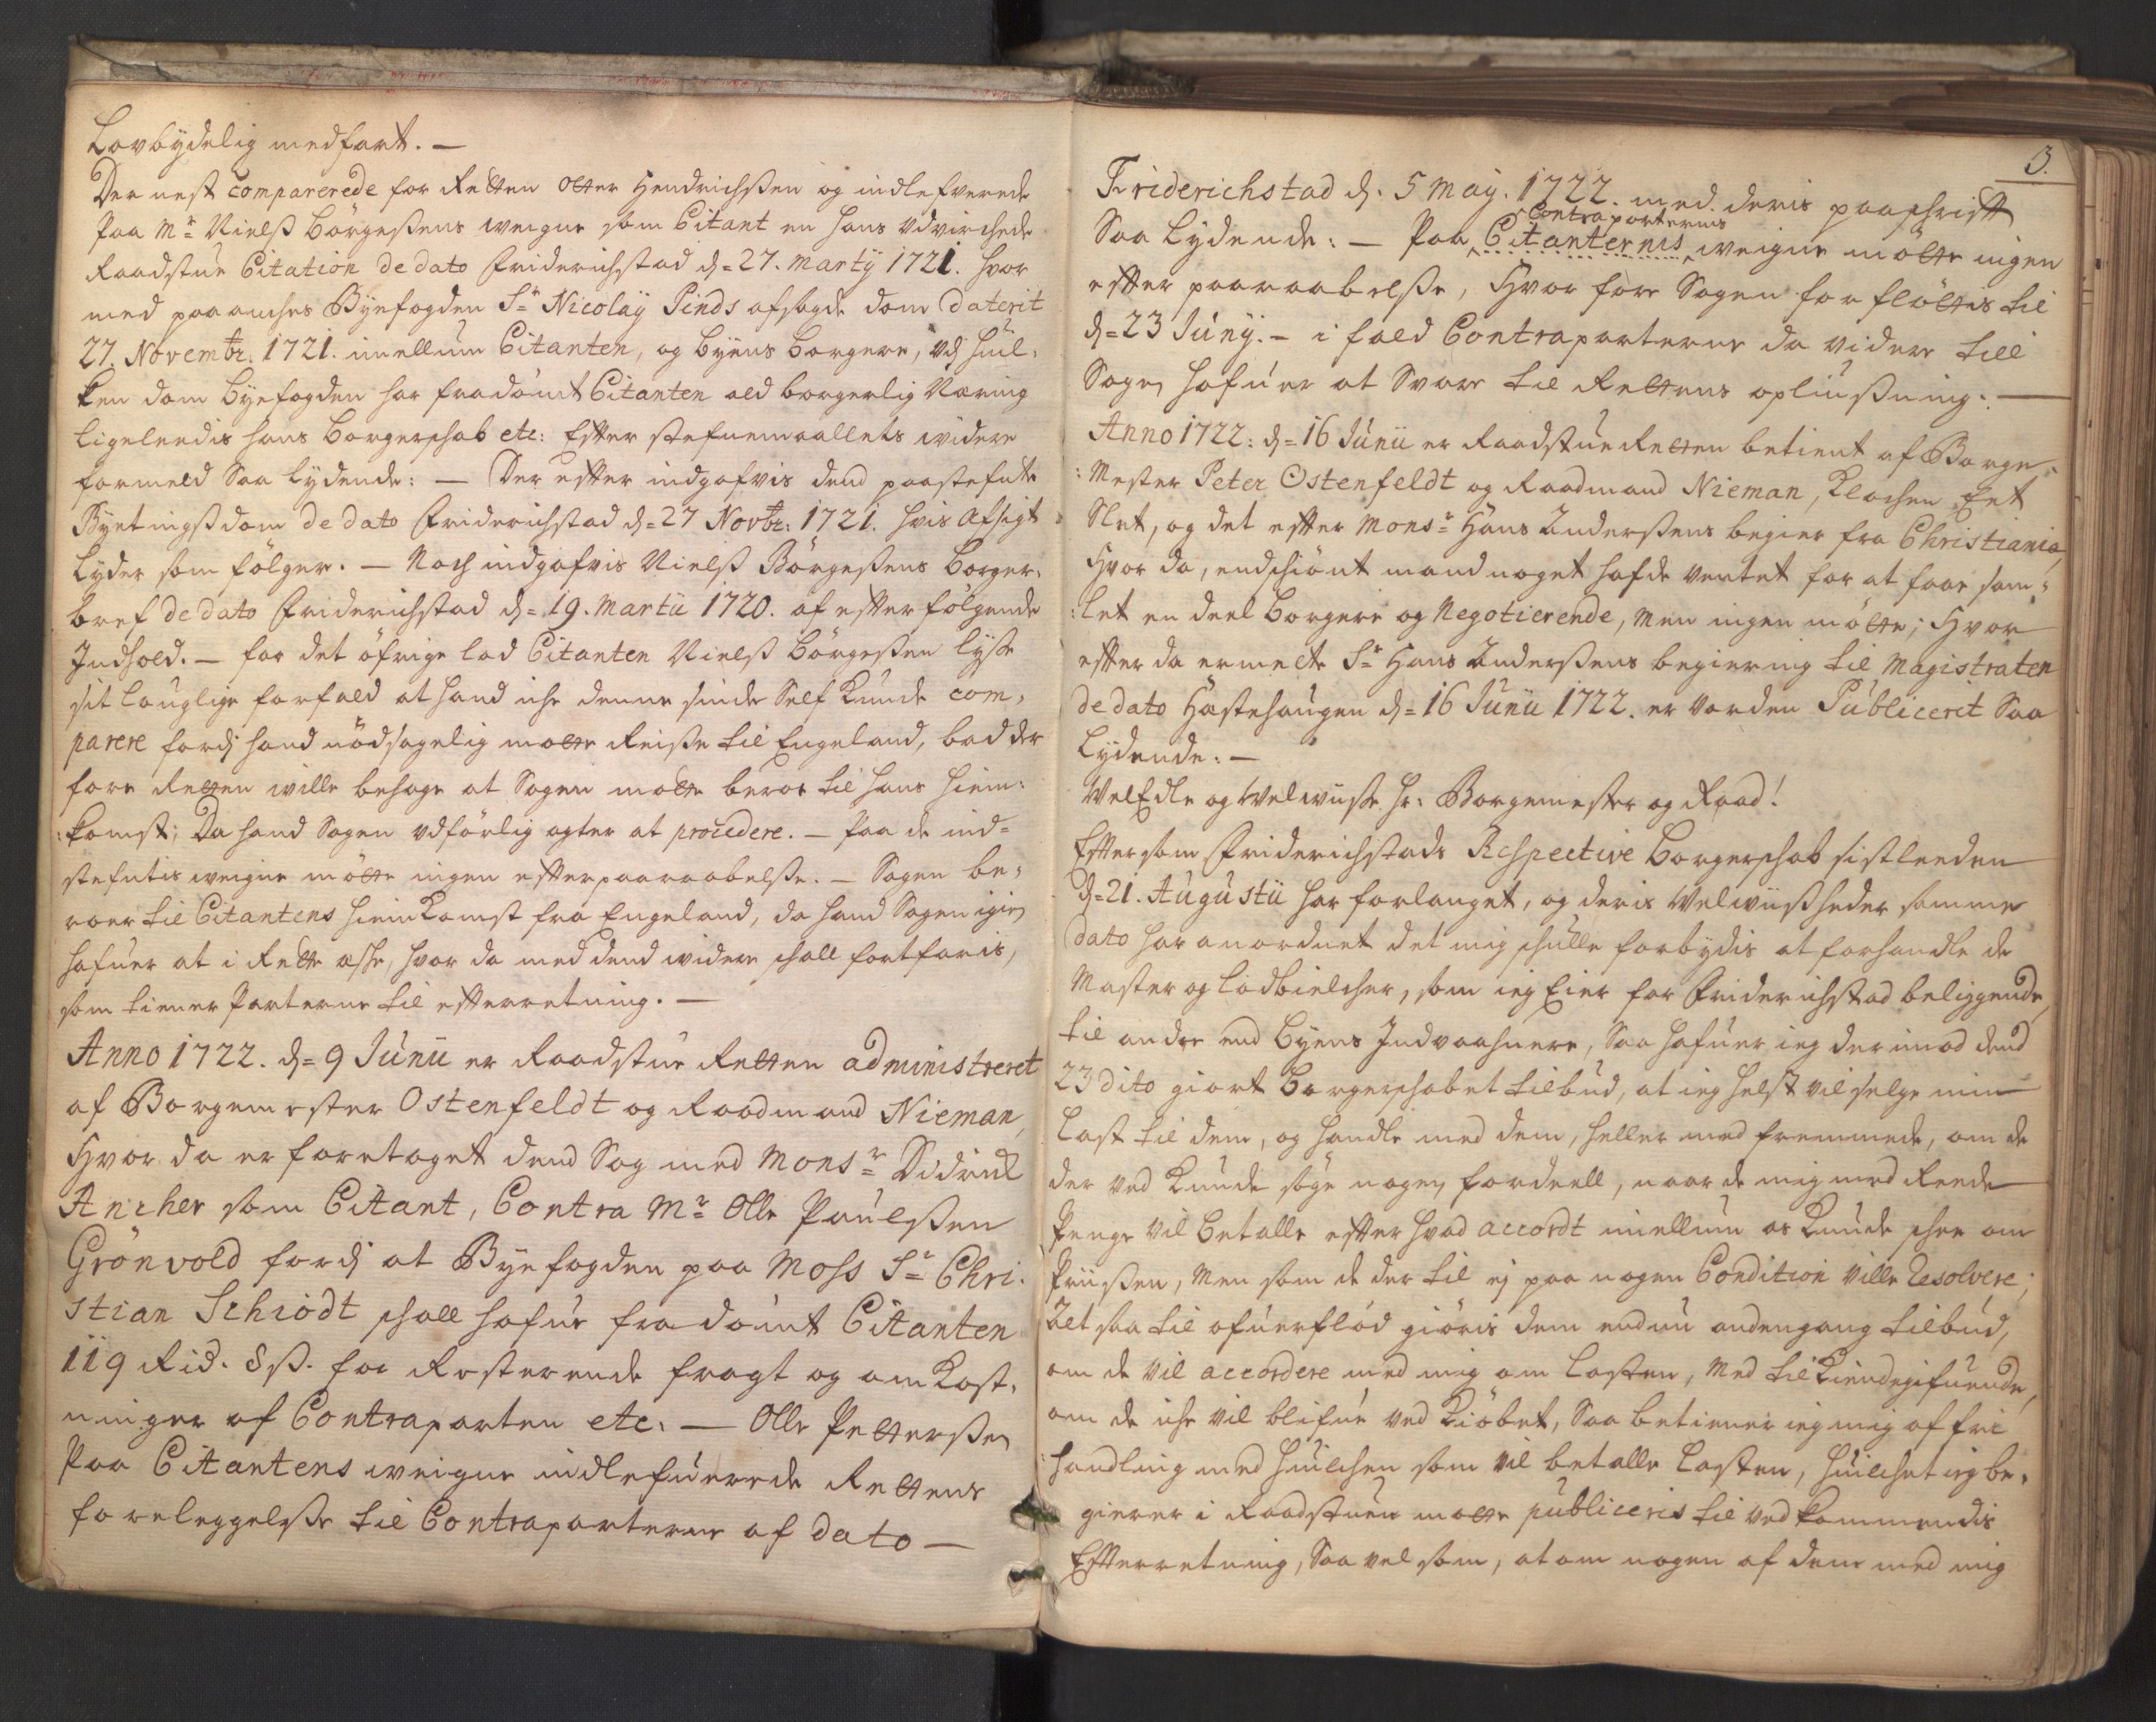 Lovbydelig medfart. —
Der nest comparerede for Retten Otter Hendrichßen og indlefverede
Paa Mr Nielß Börgeßens weigne som Citant en hans Udvirchede
Raadstue Citation de dato Friderichstad d= 27. Martÿ 1721. hvor
med paaanches Byefogden Sr Nicolaÿ Pinds afsagde dom daterit
27. Novembr: 1721. imellum Citanten, og byens borgere, Vdj huil-
ken dom byefogden har fradömt Citanten ald borgerlig Næring
ligeleedis hans borgerschab etc: Efter stefnemaallets widere
formeld Saa lydende: — Der efter indgafvis dend paastefnte
Byetingßdom de dato Friderichstad d= 27 Novbr: 1721. hvis Afsigt
lyder som fölger. — Noch indgafvis Nielß Börgeßens borger-
bref de dato Friderichstad d= 19. Martii 1720. af efter fölgende
Indhold. — for det öfrige lod Citanten Nielß börgeßen lyse
sit lauglige forfald at hand iche denne sinde Self kunde com-
parere fordj hand nödsagelig motte Reiße til Engeland, bad der
fore Retten wille behage at Sagen motte beroe til hans hiem-
:komst; Da hand Sagen vdförlig agter at procedere. — Paa de ind=
stefntis weigne mötte ingen efter paaraabelße. — Sagen be-
roer til Citantens hiemkomst fra Engeland, da hand Sagen igien
hafuer at i Rette æsche, hvor da med dend widere schall fortfaris,
som tiener Parterne til efterretning. —
Anno 1722. d= 9 Junii er Raadstue Retten administreret
af Borgemester Ostenfeldt og Raadmand Nieman,
Hvor da er foretaget dend Sag med Monsr Didrich
Ancher som Citant, Contra Mr Olle Paulßen
Grönvold fordj at Byefogden paa Moss Sr Chri-
stian Schiödt schall hafue fradömt Citanten
119 Rid. 8 ß. for Resterende fragt og omkost-
ninger af Contraparten etc. — Olle Petterßen
Paa Citantens weigne indlefuerede Rettens
foreleggelße til Contraparterne af dato —
3.
Friderichstad d. 5 May. 1722. med deris paaschrift
Contraparternis
Saa lydende: — Paa Citanternis weigne mötte ingen
efter paaraabelße, Hvor fore Sagen forflöttis til
d= 23 Junÿ. — i fald Contraparterne da videre till
Sagen hafuer at Svare til Rettens opliußning. —
Anno 1722: d= 16 Junii er Raadstue Retten betient af Borge-
:Mester Peter Ostenfeldt og Raadmand Nieman, Klochen Eet
Slet, og det efter Monsr Hans Anderßens begier fra Christiania,
Hvor da, endschiönt mand noget hafde ventet for at faae sam-
:let en deel borgere og Negotierende, Men ingen mötte; Hvor
efter da ermelte Sr Hans Anderßens begiering til Magistraten
de dato Hastehaugen d= 16 Junii 1722. er vorden Publicerit Saa
lydende. —
WelEdle og Welwiise Hr: Borgemester og Raad!
Eftersom Friderichstads Respective borgerschab sistleeden
d= 21. Augustii har forlanget, og deris Welwiißheder samme
dato har anordnet det mig schulle forbydis at forhandle de
Master og lodbielcher, som ieg Eier for Friderichstad beliggende,
til andre end byens Indvaahnere, Saa hafuer ieg derimod dend
23 dito giort borgerschabet tilbud, at ieg helst vil selge min
last til dem, og handle med dem, heller med fremmede, om de
der ved kunde söge nogen fordeell, naar de mig med Reede
Penge vil betalle efter hvad accordt imellum os kunde schee om
Priißen, Men som de der til ej paa nogen Condition ville Resolvere;
Alt saa til ofuerflöd giöris dem endnu andengang tilbud,
om de vil accordere med mig om lasten, Med tilkiendegifuende,
om de iche vil blifue ved kiöbet, Saa betiener ieg mig af frie
handling med huilchen som vil betalle lasten, huilchet ieg be-
gierer i Raadstuen motte publiceris til vedkommendis
Efterretning, Saa vel som, at om nogen af dem med mig